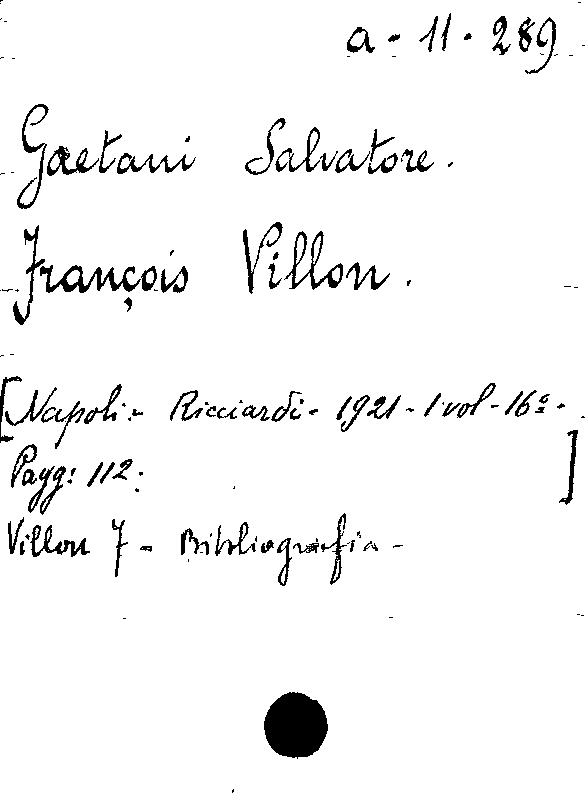 a - 11 - 289
Gaetani Salvatore.
François Villon.
[Napoli - Ricciardi - 1921 - 1 vol - 16º -
Pagg: 112.]
Villon F - Bibliografia -